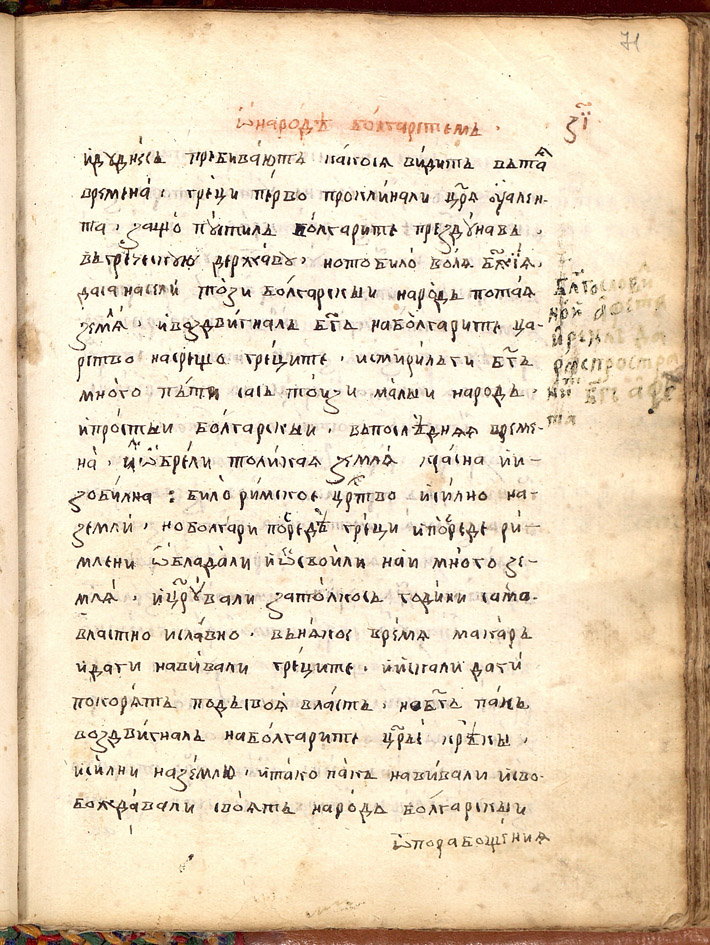 71
ѡ народѣ болгарстемъ ·
и дуднесь пребиваютъ накося видитъ въ таѧ
времена · греци перво проклинали цр҃ѧ ѹален-
та · защо пустилъ болгарите презъ дунавъ ·
въ греческую державу · но то било волѧ бж҃їѧ ·
да са насели този болгарскыи народъ по таѧ
землѧ · и воздвигналъ бг҃ъ на болгарите ца-
рство насрещо греците · и смирилъ ги бг҃ъ
много пъти сасъ тоизи малыи народъ ·
и простыи болгарскыи · въ последнѧѧ време-
на · и ѡбрели толикаѧ землѧ красна и и-
зобилна : било римское црт҃во и силно на
земли · но болгари посредѣ греци и посреде ри-
млени ѡбладали и ѡсвоили наи много зе-
млѧ · и цр҃ували за толкось години сама-
властно и славно · въ някое времѧ макаръ
и да ги навивали греците · и искали да ги
покорѧтъ подъ своѧ власть · но бг҃ъ пакъ
воздвигналъ на болгарите цр҃ые крѣпкы ·
и силни на землю · и тако пакъ навивали и сво-
бождавали своятъ народъ болгарскыи
ѡ порабощениѧ
бл҃гослови
ной афета
и рекъ да
распростра
нитъ бг҃ъ афе
та